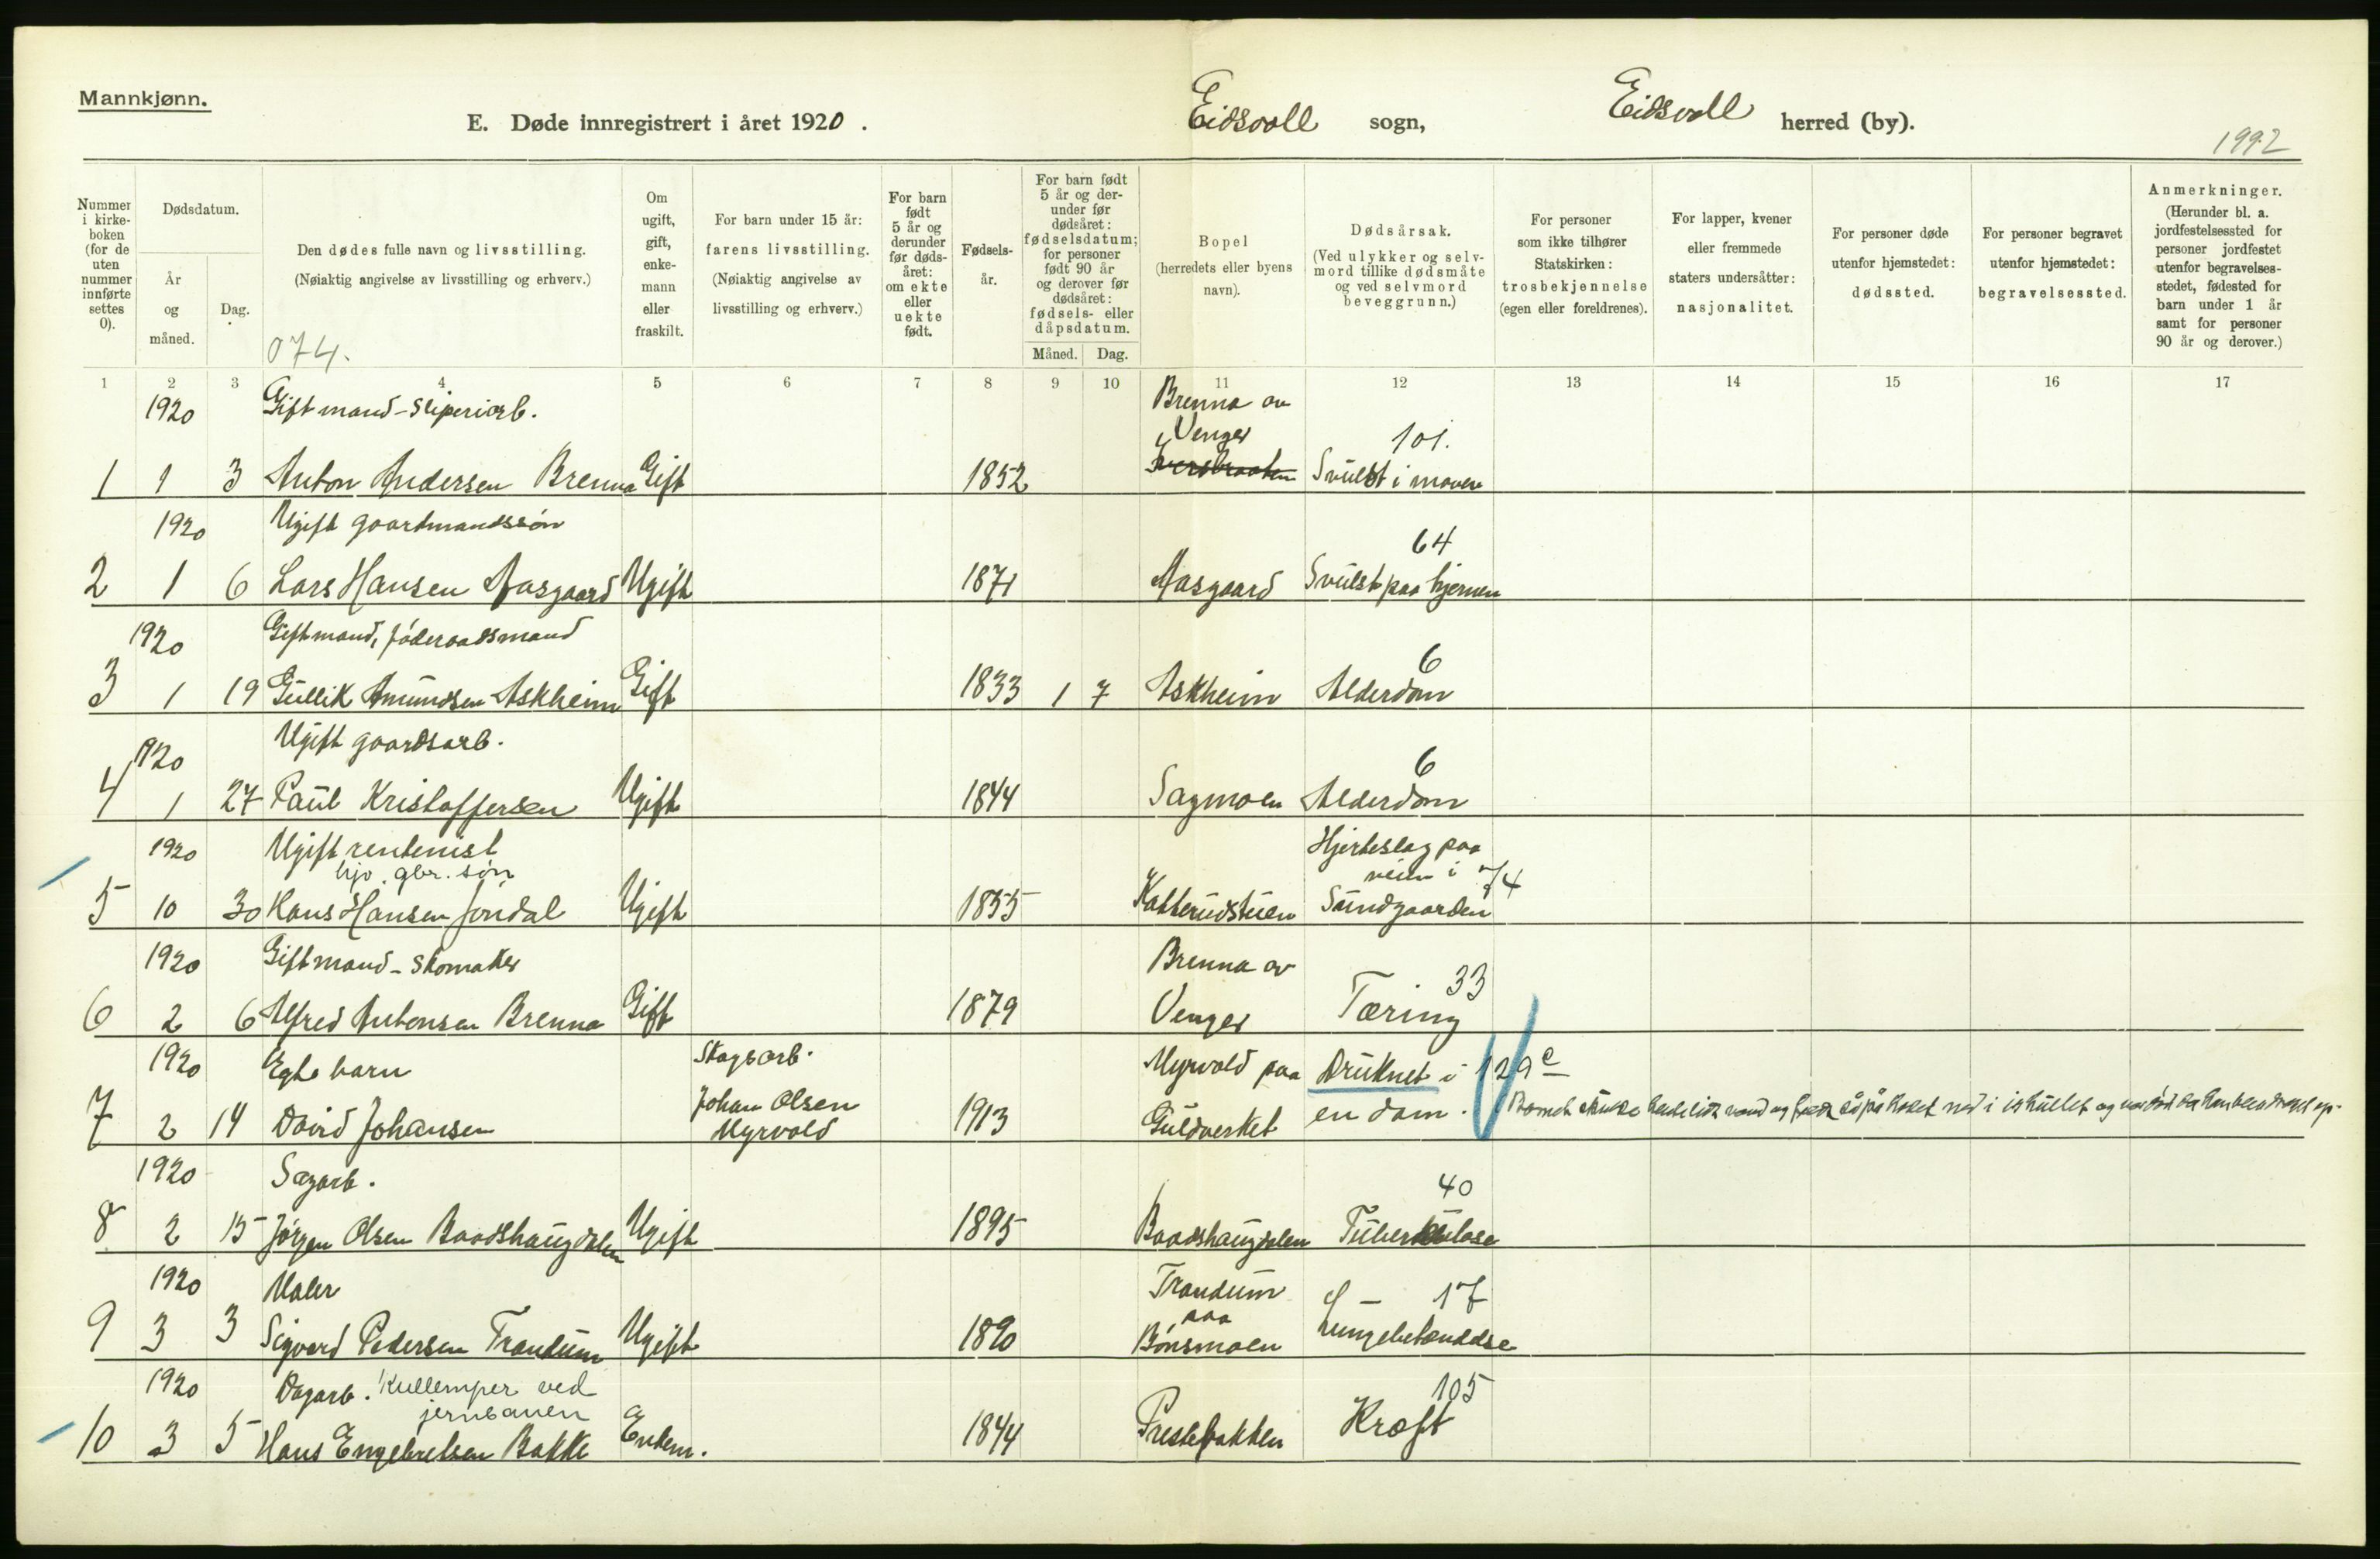 Mannkjønn.
E. Døde innregistrert i året 1920.
Eidsvoll sogn, Eidsvoll herred (by).
1992
Nummer i kirkeboken (for de uten nummer innførte settes 0).
Dødsdatum.
År og måned.
Dag.
Den dødes fulle navn og livsstilling.
(Nøiaktig angivelse av livsstilling og erhverv.)
074.
Om ugift, gift, enkemann eller fraskilt.
For barn under 15 år: farens livsstilling.
(Nøiaktig angivelse av livsstilling og erhverv.)
For barn født 5 år og derunder før dødsåret: om ekte eller uekte født.
Fødselsår.
For barn født 5 år og derunder før dødsåret: fødselsdatum; for personer født 90 år og derover før dødsåret: fødsels- eller dåpsdatum.
Måned. Dag.
Bopel (herredets eller byens navn).
Dødsårsak.
(Ved ulykker og selvmord tillike dødsmåte og ved selvmord beveggrunn.)
For personer som ikke tilhører Statskirken: trosbekjennelse (egen eller foreldrenes).
For lapper, kvener eller fremmede staters undersåtter: nasjonalitet.
For personer døde utenfor hjemstedet: dødssted.
For personer begravet utenfor hjemstedet: begravelsessted.
Anmerkninger.
(Herunder bl. a. jordfestelsessted for personer jordfestet utenfor begravelsesstedet, fødested for barn under 1 år samt for personer 90 år og derover.)
1 2 3 4 5 6 7 8 9 10 11 12 13 14 15 16 17
1920 Gift mand - Sliperiarb. Brenna av
Venger 101.
1 1 3 Anton Andersen Brenna Gift 1852 Svulst i maven
1920 Ugift gaardmandssøn
64
2 1 6 Lars Hansen Aasgaard Ugift 1871 Aasgaard Svulst paa hjernen
1920 Gift mand, føderaadsmand
6
3 1 19 Gullik Amundsen Askheim Gift 1833 1 7 Askheim Alderdom
1920 Ugift gaardsarb.
6
4 1 27 Paul Kristoffersen Ugift 1844 Sagmoen Alderdom
1920 Ugift rentenist Hjerteslag paa
gbr. søn veien i 74
5 10 30 Hans Hansen Ugift 1855 Katterudstuen Sundgaarden
1920 Gift mand - Skomaker Brenna av
33
6 2 6 Alfred Antonsen Brenna Gift 1879 Venger Tæring
1920 Egte barn Skogsarb. Myrvold paa Druknet i 129 c
7 2 14 David Johansen Johan Olsen Myrvold 1913 Guldverket en dam.
1920 Sagarb.
40
8 2 15 Jørgen Olsen Baadshaugdalen Ugift 1895 Baadshaugdalen Tuberkulose
1920 Maler Trandum 17
paa
9 3 3 Sigvard Pedersen Trandum Ugift 1890 Bønsmoen Lungebetændelse
1920 Dagarb. Kullemper ved 105
jernbanen
10 3 5 Hans Engebretsen Bakke Enkem. 1844 Prestebakken Kræft